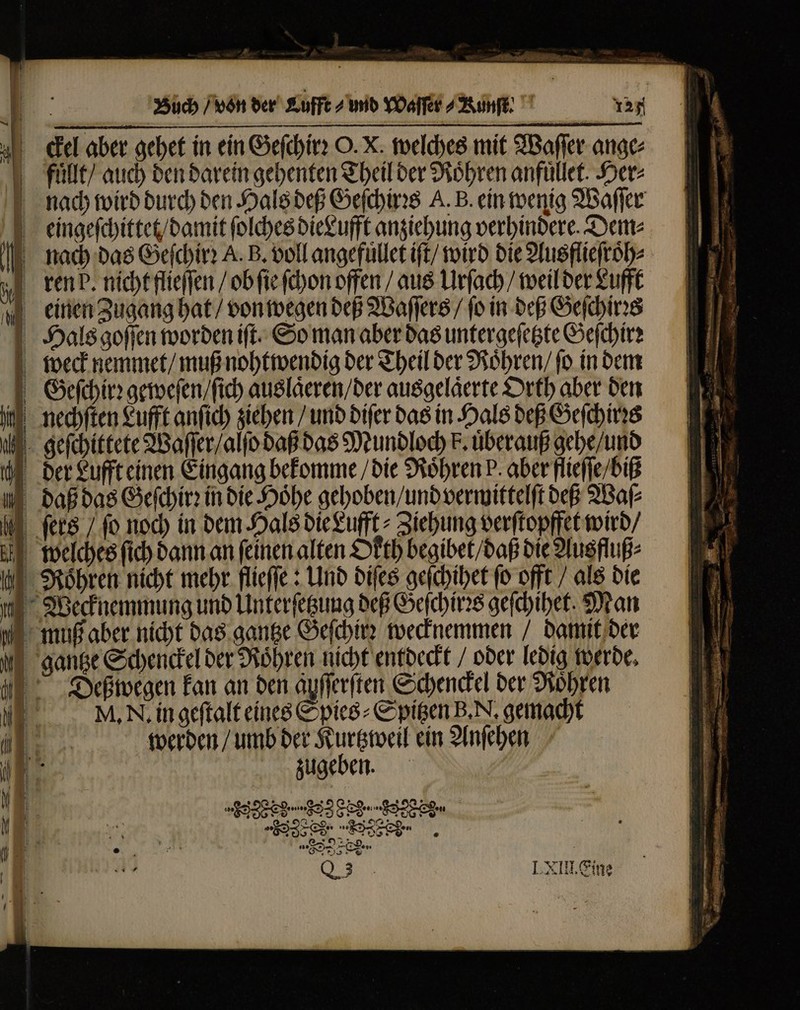 Buch / von der Lufft ⸗ und Waſſer ⸗ Kunſt. 125
ckel aber gehet in ein Geſchirꝛ O. X. welches mit Waſſer ange⸗
fuͤllt / auch den darein gehenten Theil der Roͤhren anfuͤllet. Her⸗
nach wird durch den Hals deß Geſchirꝛs A. B. ein wenig Waſſer
eingeſchittet / damit ſolches die Lufft anziehung verhindere. Dem⸗
nach das Geſchirꝛ A. B. voll angefuͤllet iſt / wird die Ausflieſroͤh⸗
ren P. nicht flieſſen / ob ſie ſchon offen / aus Urſach / weil der Lufft
einen Zugang hat / von wegen deß Waſſers / ſo in deß Geſchirꝛs
Hals goſſen worden iſt. So man aber das untergeſetzte Geſchirꝛ
weck nemmet / muß nohtwendig der Theil der Roͤhren / ſo in dem
Geſchirꝛ geweſen / ſich auslaͤeren / der ausgelaͤerte Orth aber den
nechſten Lufft anſich ziehen / und diſer das in Hals deß Geſchirꝛs
geſchittete Waſſer / alſo daß das Mundloch F. uͤberauß gehe / und
der Lufft einen Eingang bekomme / die Roͤhren P. aber flieſſe / biß
daß das Geſchirꝛ in die Hoͤhe gehoben / und vermittelſt deß Waſ⸗
ſers / ſo noch in dem Hals die Lufft ⸗ Ziehung verſtopffet wird /
welches ſich dann an ſeinen alten Okth begibet / daß die Ausfluß⸗
Roͤhren nicht mehr flieſſe : Und diſes geſchihet ſo offt / als die
Wecknemmung und Unterſetzung deß Geſchirꝛs geſchihet. Man
muß aber nicht das gantze Geſchirꝛ wecknemmen / damit der
gantze Schenckel der Roͤhren nicht entdeckt / oder ledig werde.
Deßwegen kan an den aͤuſſerſten Schenckel der Roͤhren
M. N. in geſtalt eines Spies ⸗ Spitzen B. N. gemacht
werden / umb der Kurtzweil ein Anſehen
zugeben.
Q 3 LXIII. Eine